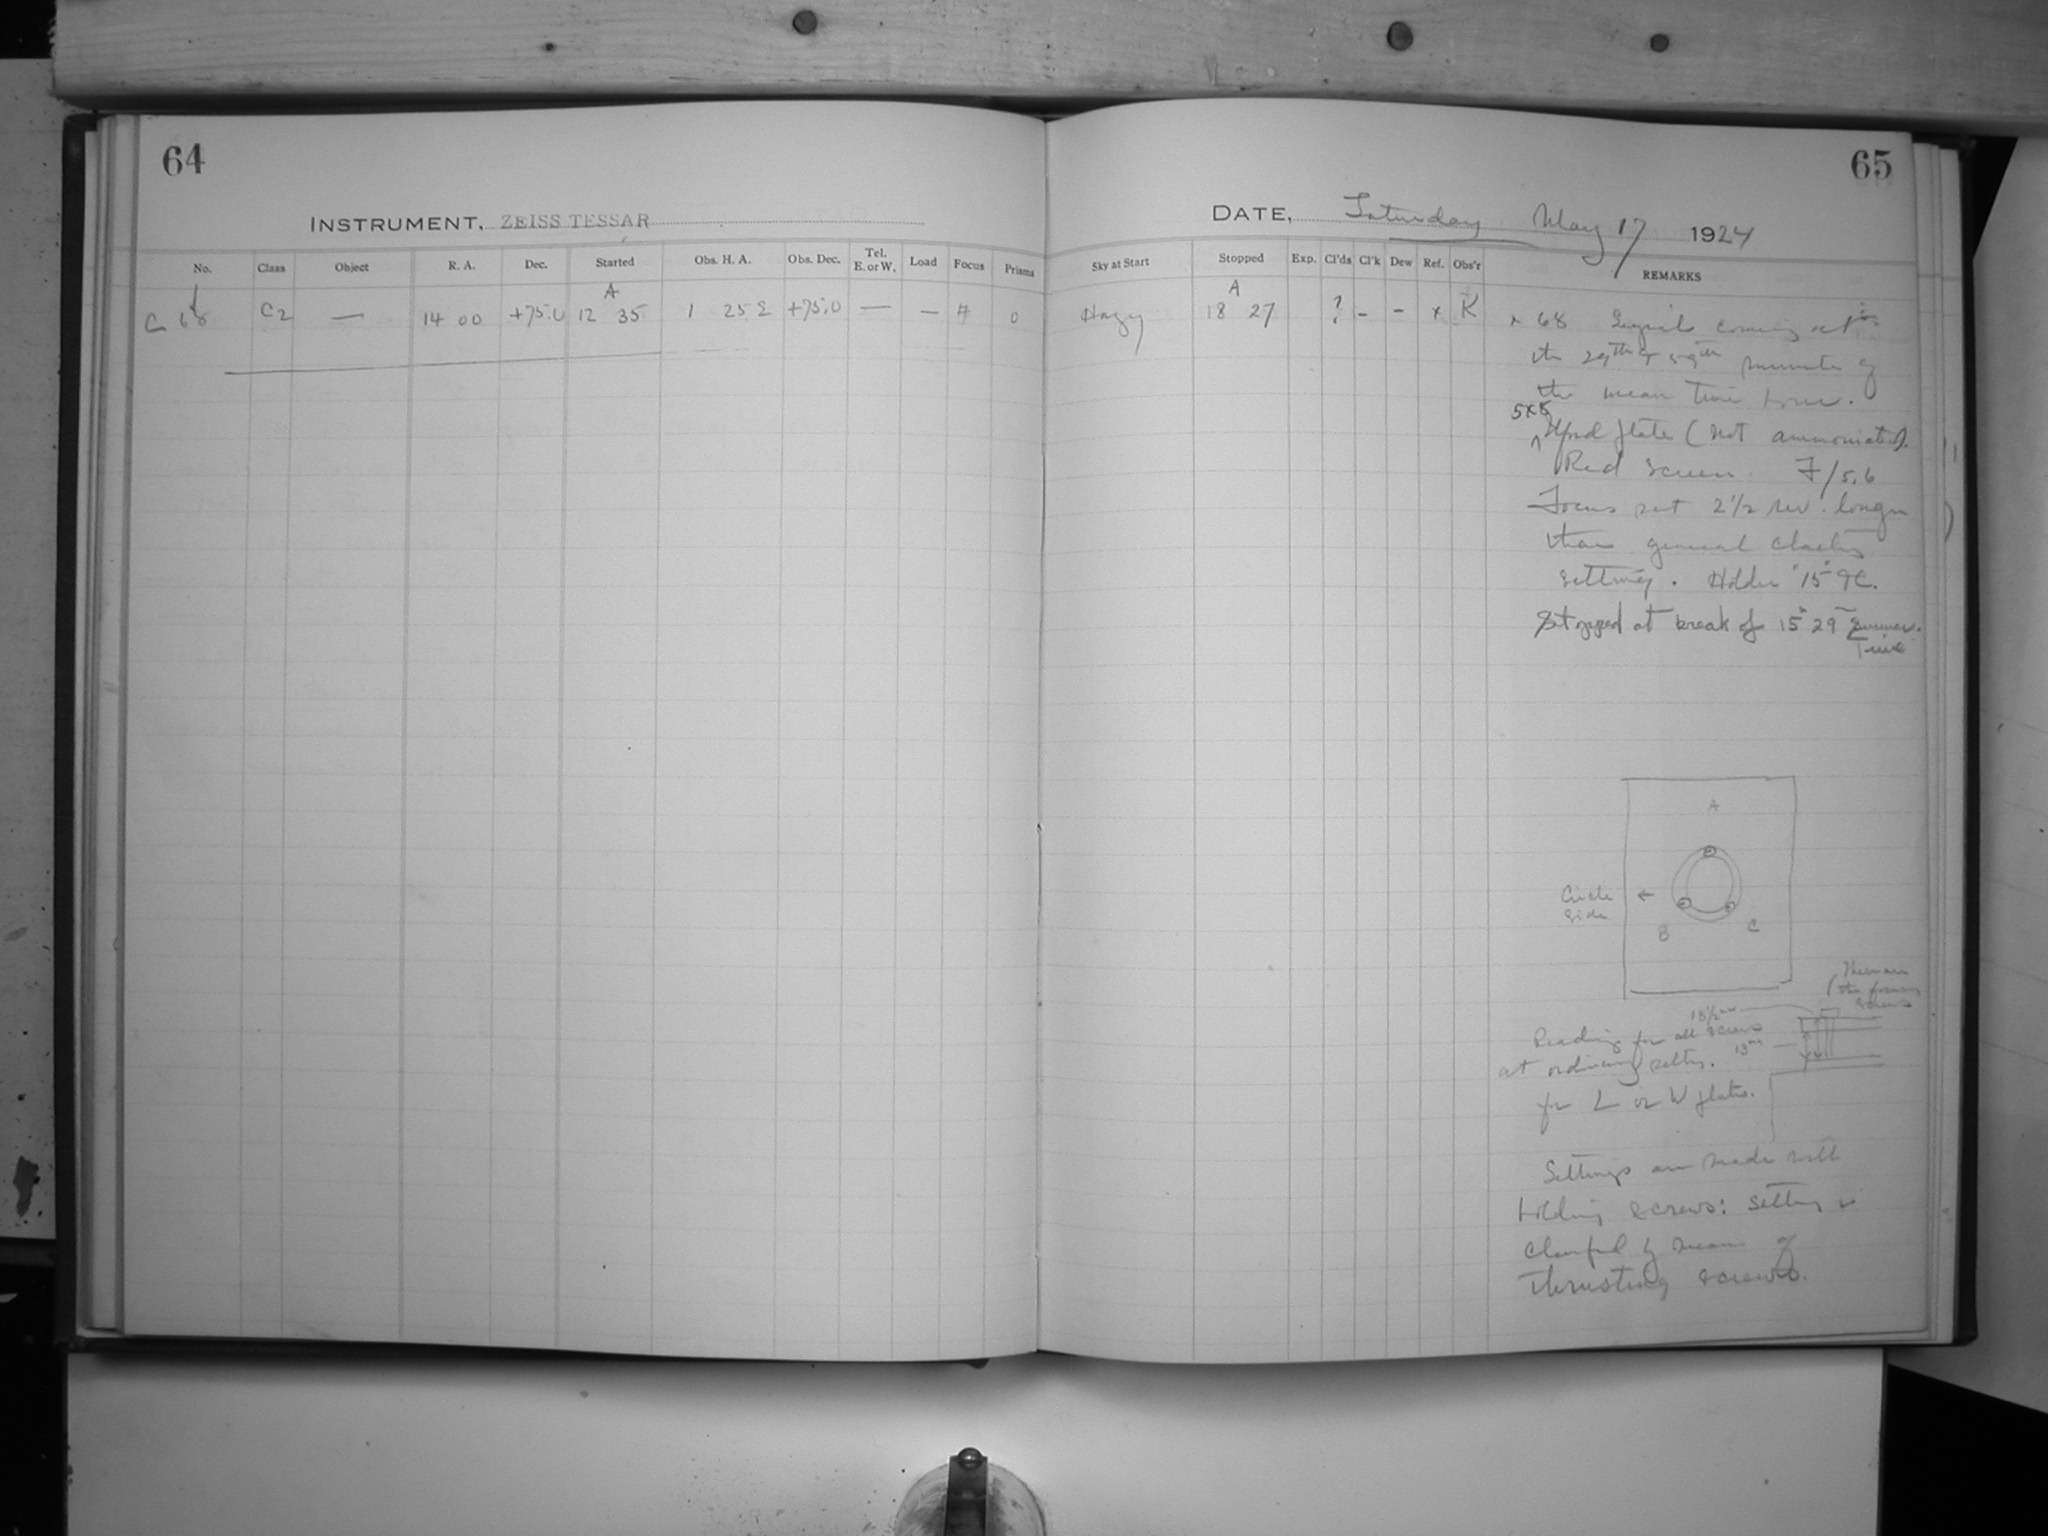 64
INSTRUMENT, ZEISS TESSAR
No. Class Object R. A. Dec. Started Obs. H. A. Obs. Dec. Tel. E. or W. Load Focus Prisms
C 68 C2 — 14 00 +75.0 A 12 35 1 25 E +75.0 — — # 0
65
DATE, Saturday May 17 1924
Sky at Start Stopped Exp. Cl'ds Cl'k Dew Ref. Obs'r REMARKS
Hazy A 18 27 ? - - x K
x 68 Signals coming at
the 29th & 59th minute of
the mean time hour.
5x8
^ Ilford plate (not ammoniated).
Red Screen F/5.6
Focus set 2 1/2 rev. longer
than general
setting. Holder "15" 
Stopped at break of 15h 29m Summer
Time
A
Circle ←
side
B C
These are
the focusing
screws
18 1/2 mm
Reading for all screws
13 mm
at ordinary setting.
for L or W plates.
Settings are made with
holding screws: setting is
clamped by means of
thrusting screws.